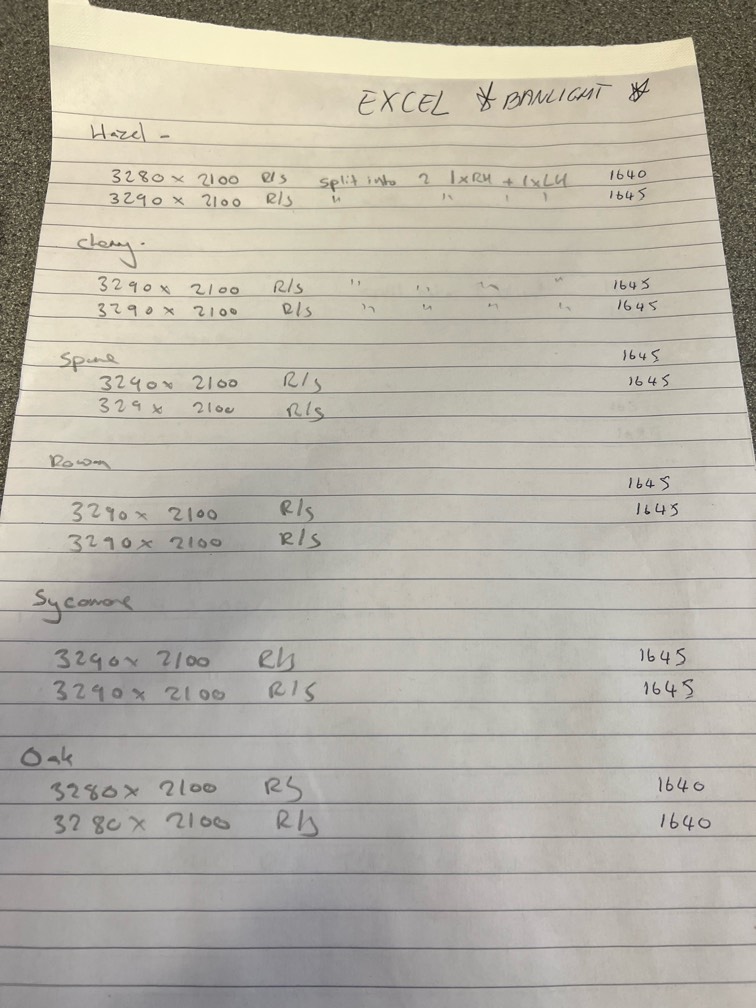 EXCEL * BANLIGHT *
Hazel -
3280 x 2100 R/s split into 2 1xRH + 1xLH 1640
3290 x 2100 R/s " " ' ' 1645
Chery.
3290 x 2100 R/s " " " " 1645
3290 x 2100 R/s " " " " 1645
1645
3290 x 2100 R/s 1645
329 x 2100 R/s
Rowan
1645
3290 x 2100 R/s 1645
3290 x 2100 R/s
Sycamore
3290 x 2100 R/s 1645
3290 x 2100 R/S 1645
Oak
3280 x 2100 RS 1640
3280 x 2100 R/s 1640